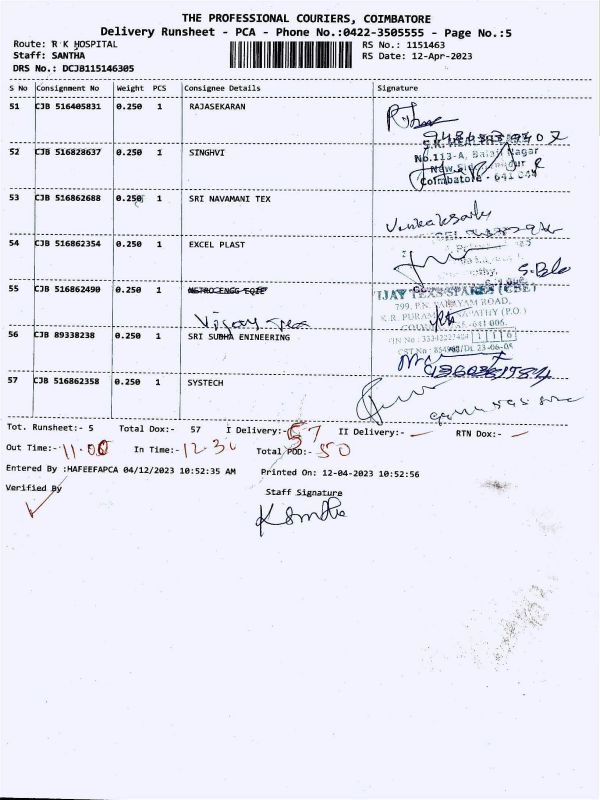 THE PROFESSIONAL COURIERS, COIMBATORE
Delivery Runsheet - PCA - Phone No.:0422-3505555 - Page No.:5
Route: R K HOSPITAL RS No.: 1151463
Staff: SANTHA RS Date: 12-Apr-2023
DRS No.: DCJB115146305
S No Consignment No Weight PCS Consignee Details Signature
51 CJB 516405831 0.250 1 RAJASEKARAN
52 CJB 516828637 0.250 1 SINGHVI
No.113-A, Balaji Nagar
Coimbatore - 641
53 CJB 516862688 0.250 1 SRI NAVAMANI TEX
54 CJB 516862354 0.250 1 EXCEL PLAST
55 CJB 516862490 0.250 1 METRO ENGG EQIE
Vijay Tex
TEXSPARES (CBE)
799, P.N. PALAYAM ROAD,
56 CJB 89338238 0.250 1 SRI SUBHA ENINEERING
57 CJB 516862358 0.250 1 SYSTECH
Tot. Runsheet:- 5 Total Dox:- 57 I Delivery:- 57 II Delivery:- — RTN Dox:- —
Out Time:- 11.00 In Time:- 12.30 Total POD:- 50
Entered By :HAFEEFAPCA 04/12/2023 10:52:35 AM Printed On: 12-04-2023 10:52:56
Verified By
Staff Signature